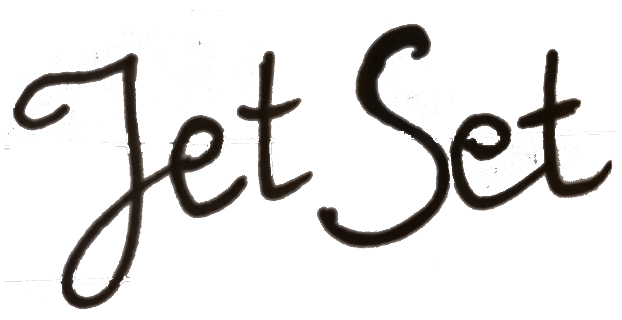 Jet Set